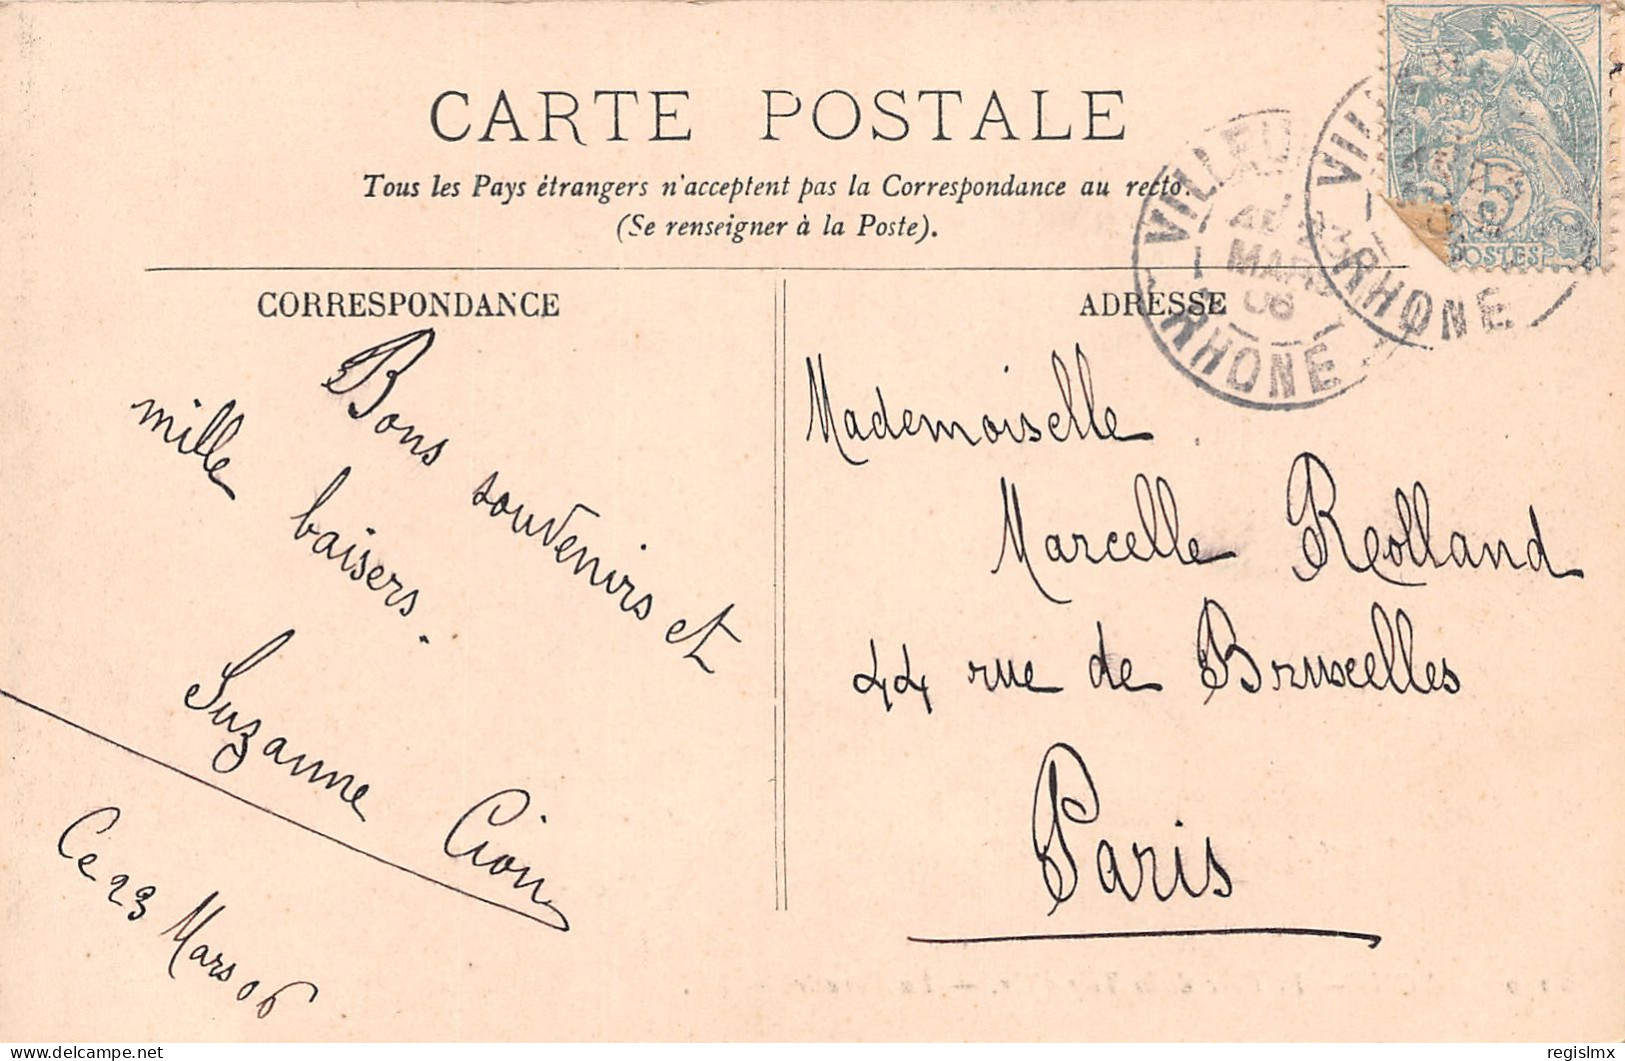 CARTE POSTALE
Tous les Pays étrangers n'acceptent pas la Correspondance au recto.
(Se renseigner à la Poste).
CORRESPONDANCE
Bons souvenirs et
mille baisers.
Suzanne Cion
Ce 23 Mars 06
ADRESSE
Mademoiselle
Marcelle Reolland
44 rue de Bruxelles
Paris
RHONE
MARS
06
RHONE
5
POSTES
www.delcampe.net
regislmx